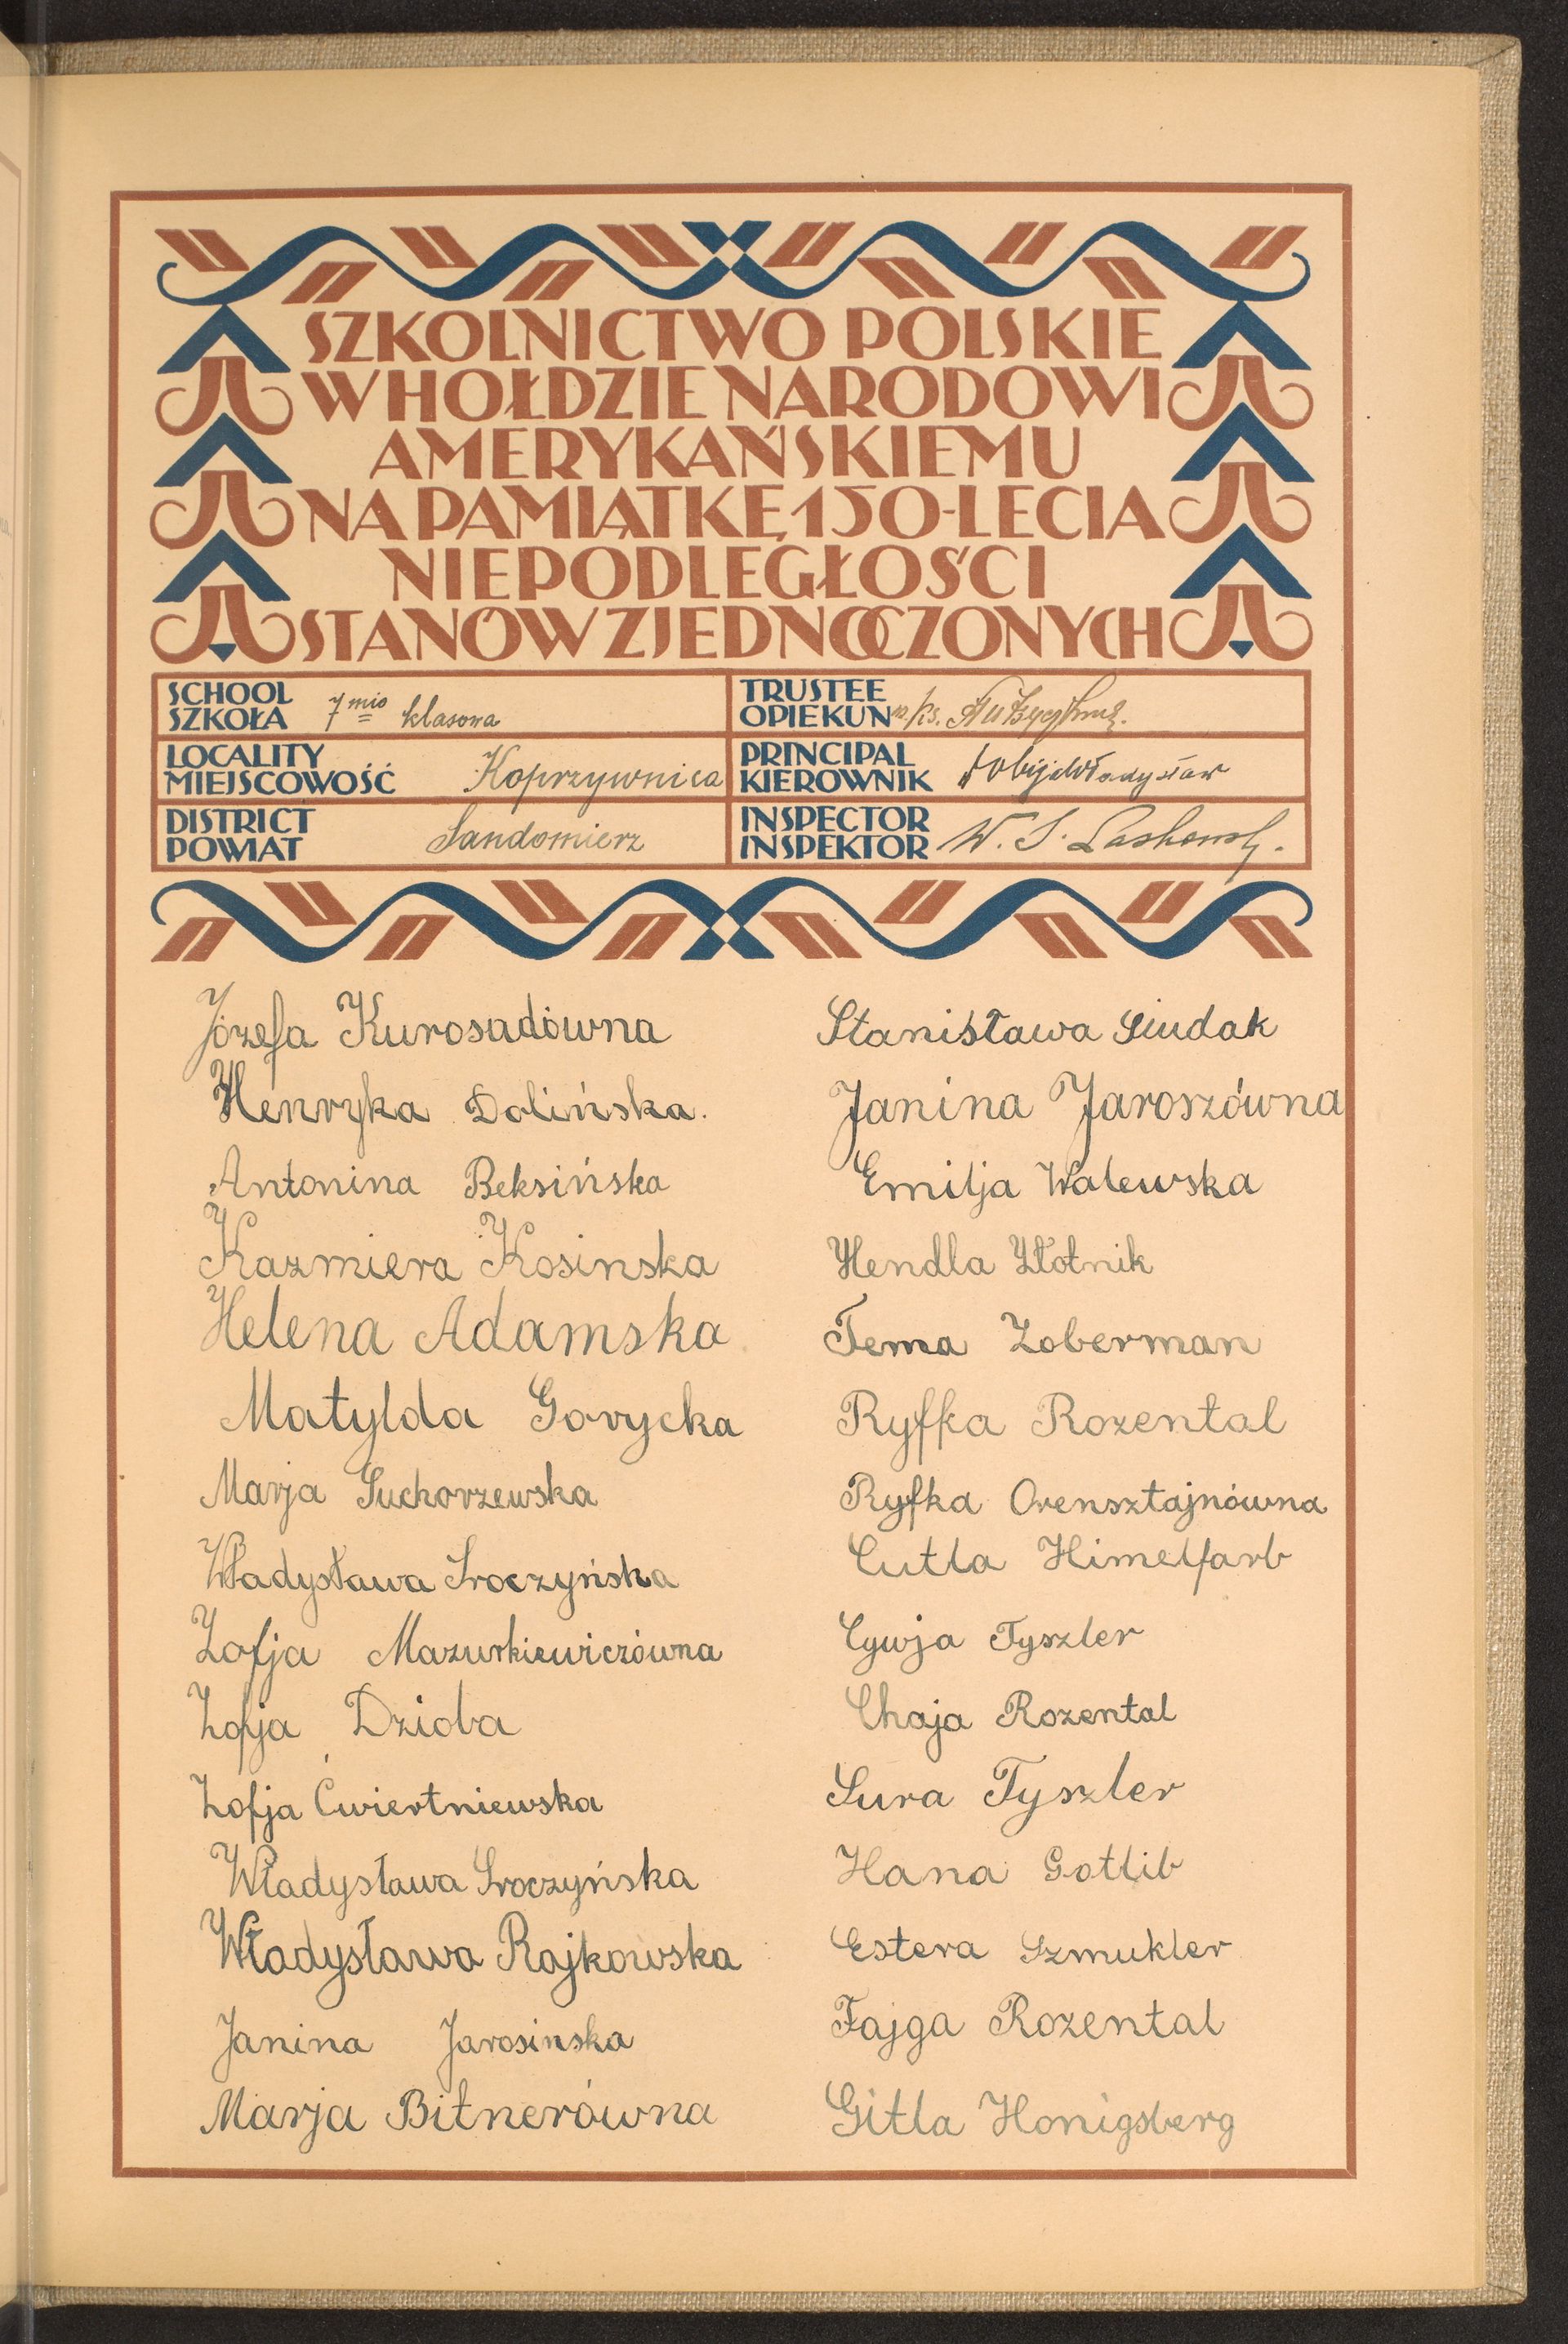 SZKOLNICTWO POLSKIE
W HOŁDZIE NARODOWI
AMERYKAŃSKIEMU
NA PAMIĄTKĘ 150-LECIA
NIEPODLEGŁOŚCI
STANÓW ZJEDNOCZONYCH
SCHOOL
SZKOŁA 7mio klasowa
TRUSTEE
OPIEKUN ks.
LOCALITY
MIEJSCOWOŚĆ Koprzywnica
PRINCIPAL
KIEROWNIK Władysław
DISTRICT
POWIAT Sandomierz
INSPECTOR
INSPEKTOR W. S.
Józefa Kurosadówna
Henryka Dolińska.
Antonina Beksińska
Kazmiera Kosinska
Helena Adamska
Matylda Gorycka
Marja Suchorzewska
Władysława Sroczyńska
Zofja Mazurkiewiczówna
Zofja Dzioba
Zofja Ćwiertniewska
Władysława Sroczyńska
Władysława Rajkowska
Janina Jarosinska
Marja Bitnerówna
Stanisława Siudak
Janina Jaroszówna
Emilja Walewska
Hendla Złotnik
Tema Zoberman
Ryfka Rozental
Ryfka Orensztajnówna
Cutla Himelfarb
Cywja Tyszler
Chaja Rozental
Sura Tyszler
Hana Gotlib
Estera Szmukler
Fajga Rozental
Gitla Honigsberg